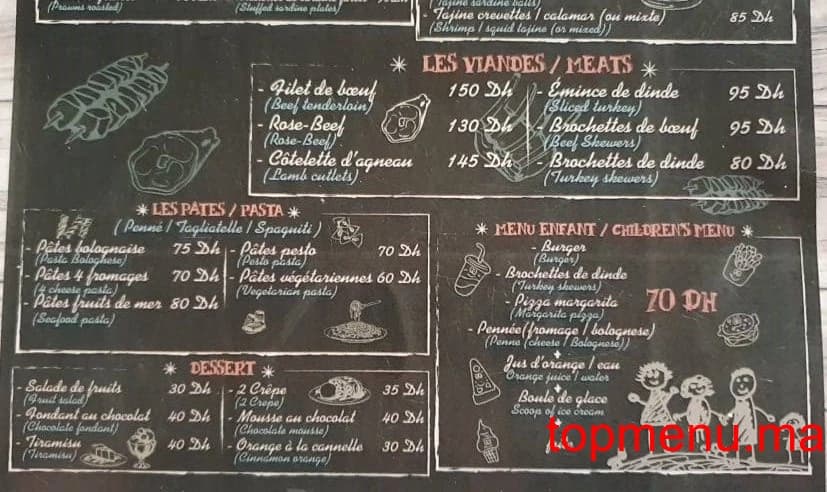 (Prawns roasted)
(Stuffed sardine plates)
(Tajine sardine balls)
- Tajine crevettes / calamar (ou mixte) 85 Dh
(Shrimp / squid tajine (or mixed))
* LES VIANDES / MEATS *
- Filet de bœuf 150 Dh
(Beef tenderloin)
- Rose-Beef 130 Dh
(Rose-Beef)
- Côtelette d'agneau 145 Dh
(Lamb cutlets)
- Émince de dinde 95 Dh
(Sliced turkey)
- Brochettes de bœuf 95 Dh
(Beef Skewers)
- Brochettes de dinde 80 Dh
(Turkey skewers)
* LES PÂTES / PASTA *
( Penné / Tagliatelle / Spaquiti )
- Pâtes bolognaise 75 Dh
(Pasta Bolognese)
- Pâtes 4 fromages 70 Dh
(4 cheese pasta)
- Pâtes fruits de mer 80 Dh
(Seafood pasta)
- Pâtes pesto 70 Dh
(Pesto pasta)
- Pâtes végétariennes 60 Dh
(Vegetarian pasta)
* MENU ENFANT / CHILDREN'S MENU *
- Burger
(Burger)
- Brochettes de dinde
(Turkey skewers)
- Pizza margarita
(Margarita pizza)
70 DH
- Pennée(fromage / bolognese)
(Penne (cheese / Bolognese))
+
Jus d'orange / eau
Orange juice / water
+
Boule de glace
Scoop of ice cream
* DESSERT *
- Salade de fruits 30 Dh
(Fruit salad)
- Fondant au chocolat 40 Dh
(Chocolate fondant)
- Tiramisu 40 Dh
(Tiramisu)
- 2 Crêpe 35 Dh
(2 Crepe)
- Mousse au chocolat 40 Dh
(Chocolate mousse)
- Orange à la cannelle 30 Dh
(Cinnamon orange)
topmenu.ma